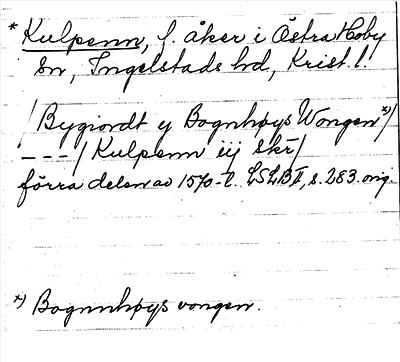 * Kulpenn, f. åker i Östra Hoby
sn, Ingelstads hd, Krist. l.
/ Bygiordt y Bognhøys Wongen *)/
– – – / Kulpenn iij skr /
förra delen av 1570-t. LSLB II, s. 283. orig.
*) Bognnhøys vongen.